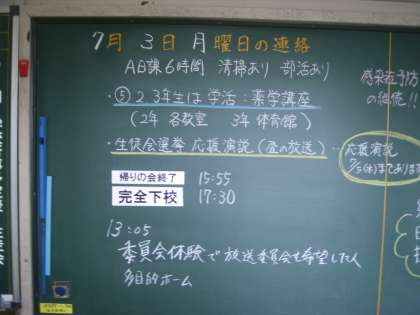 7月 3日 月曜日の連絡
AB課6時間 清掃あり 部活あり
・⑤ 2 3年生は学活:薬学講座
(2年 各教室 3年 体育館)
・生徒会選挙 応援演説(昼の放送)…応援演説
7/5(水)まであります
帰りの会終了 15:55
完全下校 17:30
13:05
委員会体験で放送委員会を希望した人
多目的ホーム
感染症予防
の価値!!